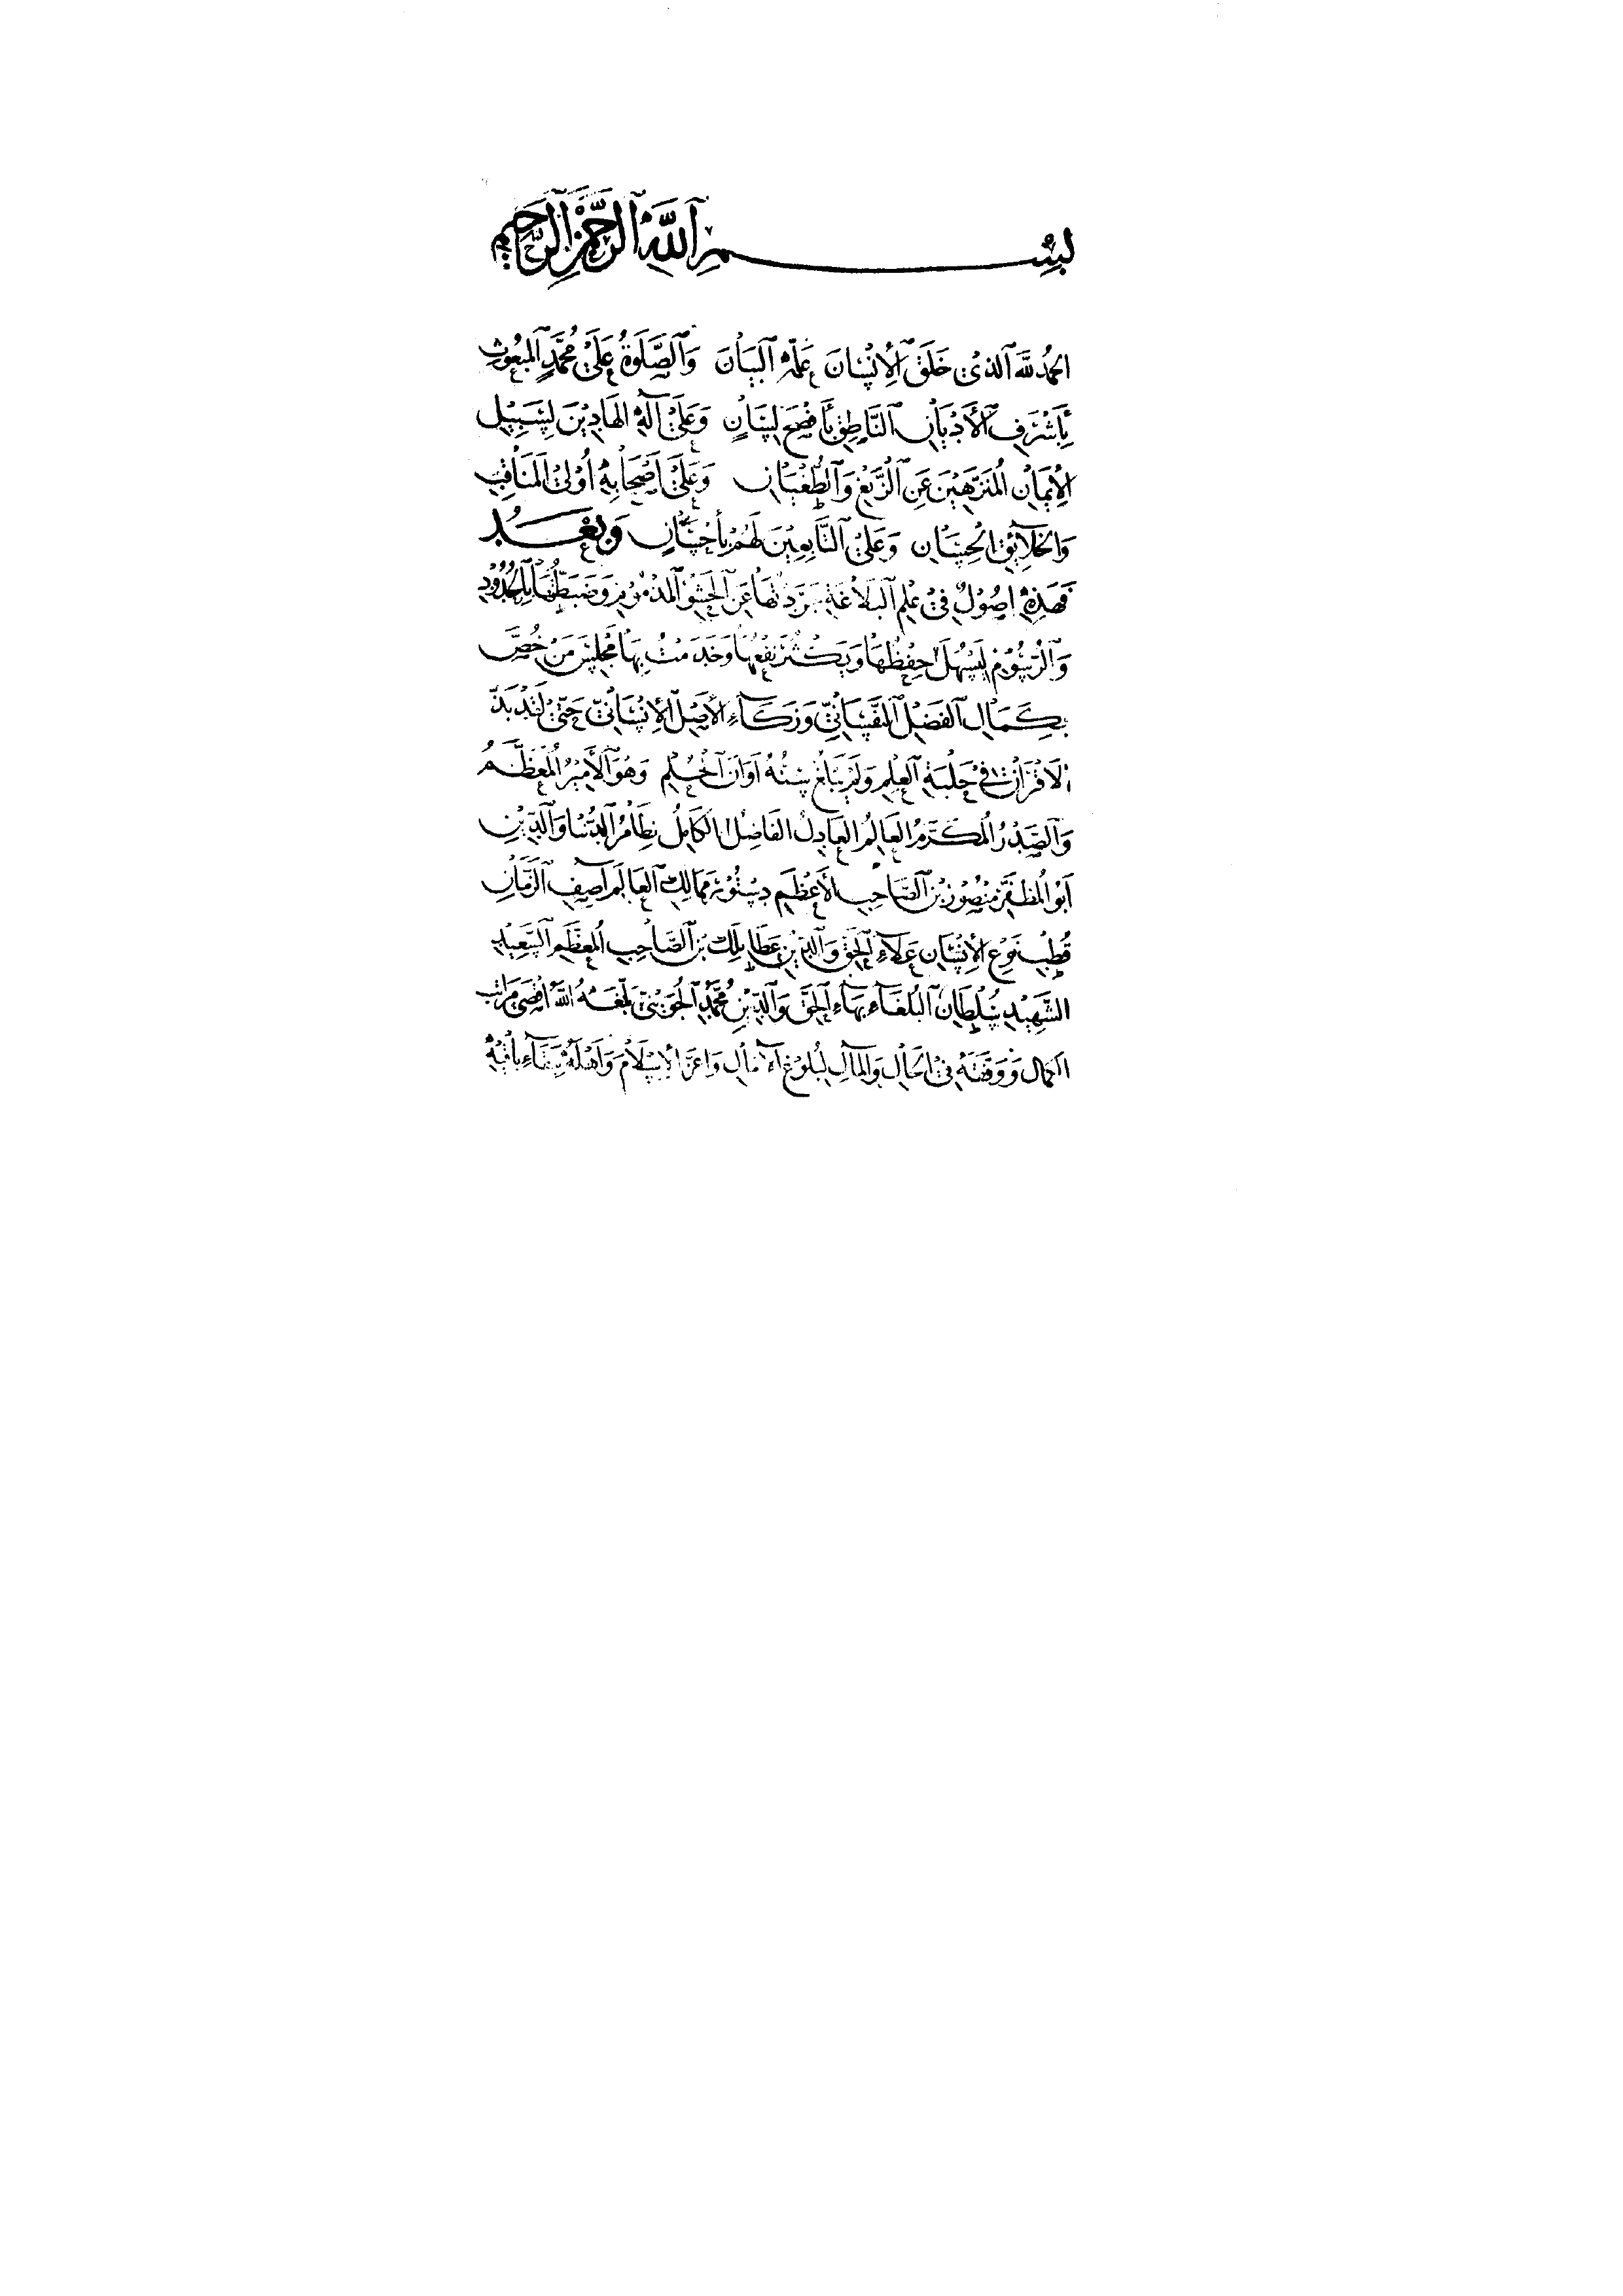 بِسْمِ ٱللَّهِ ٱلرَّحْمٰنِ ٱلرَّحِيمِ
الحمدُ للهِ ٱلذي خَلَقَ ٱلإِنْسَانَ عَلَّمَهُ ٱلبَيَانَ وَٱلصَّلَوةُ عَلَى مُحَمَّدٍ ٱلمَبْعُوثِ
بِأَشْرَفِ ٱلأَدْيَانِ ٱلنَّاطِقِ بِأَفْصَحِ لِسَانٍ وَعَلَى آلِهِ الهَادِيْنَ لِسَبِيْلِ
الإِيمَانِ المُنَزَّهِيْنَ عَنِ ٱلزَّيْغِ وَٱلطُّغْيَانِ وَعَلَى أَصْحَابِهِ أُوْلِي المَنَاقِبِ
وَالخَلَائِقِ الحِسَانِ وَعَلَى ٱلتَّابِعِيْنَ لَهُمْ بِإِحْسَانٍ وَبَعْدُ
فَهَذِهِ اصُوْلٌ فِي عِلْمِ ٱلبَلَاغَةِ جَرَّدْتُهَا عَنِ ٱلحَشْوِ ٱلمَذْمُوْمِ وَضَبَطْتُهَا بِالحُدُوْدِ
وَٱلرُّسُوْمِ لِيَسْهُلَ حِفْظُهَا وَيَكْثُرَ نَفْعُهَا وَخَدَمْتُ بِهَا مَجْلِسَ مَنْ خُصَّ
بِكَمَالِ ٱلفَضْلِ ٱلنَّفْسَانِيِّ وَزَكَاءِ الأَصْلِ ٱلإِنْسَانِيِّ حَتَّى لَقَدْ بَذَّ
الاَقْرَانَ فِي حَلْبَةِ ٱلعِلْمِ وَلَمْ يَبْلُغْ سِنُّهُ أَوَانَ ٱلحُلُمِ وَهُوَ ٱلأَمِيْرُ المُعَظَّمُ
وَٱلصَّدْرُ المُكَرَّمُ العَالِمُ العَادِلُ الفَاضِلُ الكَامِلُ نِظَامُ ٱلدُّنْيَا وَٱلدِّيْنِ
أَبُو المُظَفَّرِ مَنْصُوْرُ بْنُ ٱلصَّاحِبِ الأَعْظَمِ دُسْتُوْرِ مَمَالِكِ ٱلعَالَمِ آصِفِ ٱلزَّمَانِ
قُطْبِ نَوْعِ الإِنْسَانِ عَلَاءِ ٱلحَقِّ وَٱلدِّيْنِ عَطَا مَلِك بْنِ ٱلصَّاحِبِ المُعَظَّمِ ٱلسَّعِيْدِ
الشَّهِيْدِ سُلْطَانِ ٱلبُلَغَاءِ بَهَاءِ ٱلحَقِّ وَٱلدِّيْنِ مُحَمَّدٍ ٱلجُوَيْنِيِّ بَلَّغَهُ اللهُ أَقْصَى مَرَاتِبِ
الكمال وَوَفَّقَهُ فِي الحَالِ وَالمآلِ لِبُلُوْغِ ٱلآمَالِ وَأَعَزَّ ٱلإِسْلَامَ وَأَهْلَهُ بِبَقَاءِ